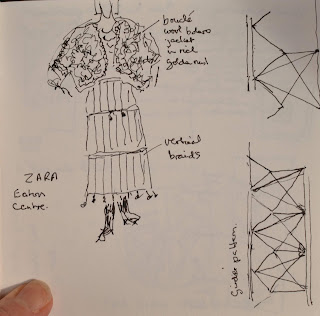 bouclé
wool bolero
jacket
in rich
golden red
vertical
braids
ZARA
Eaton
Centre.
Girder pattern.